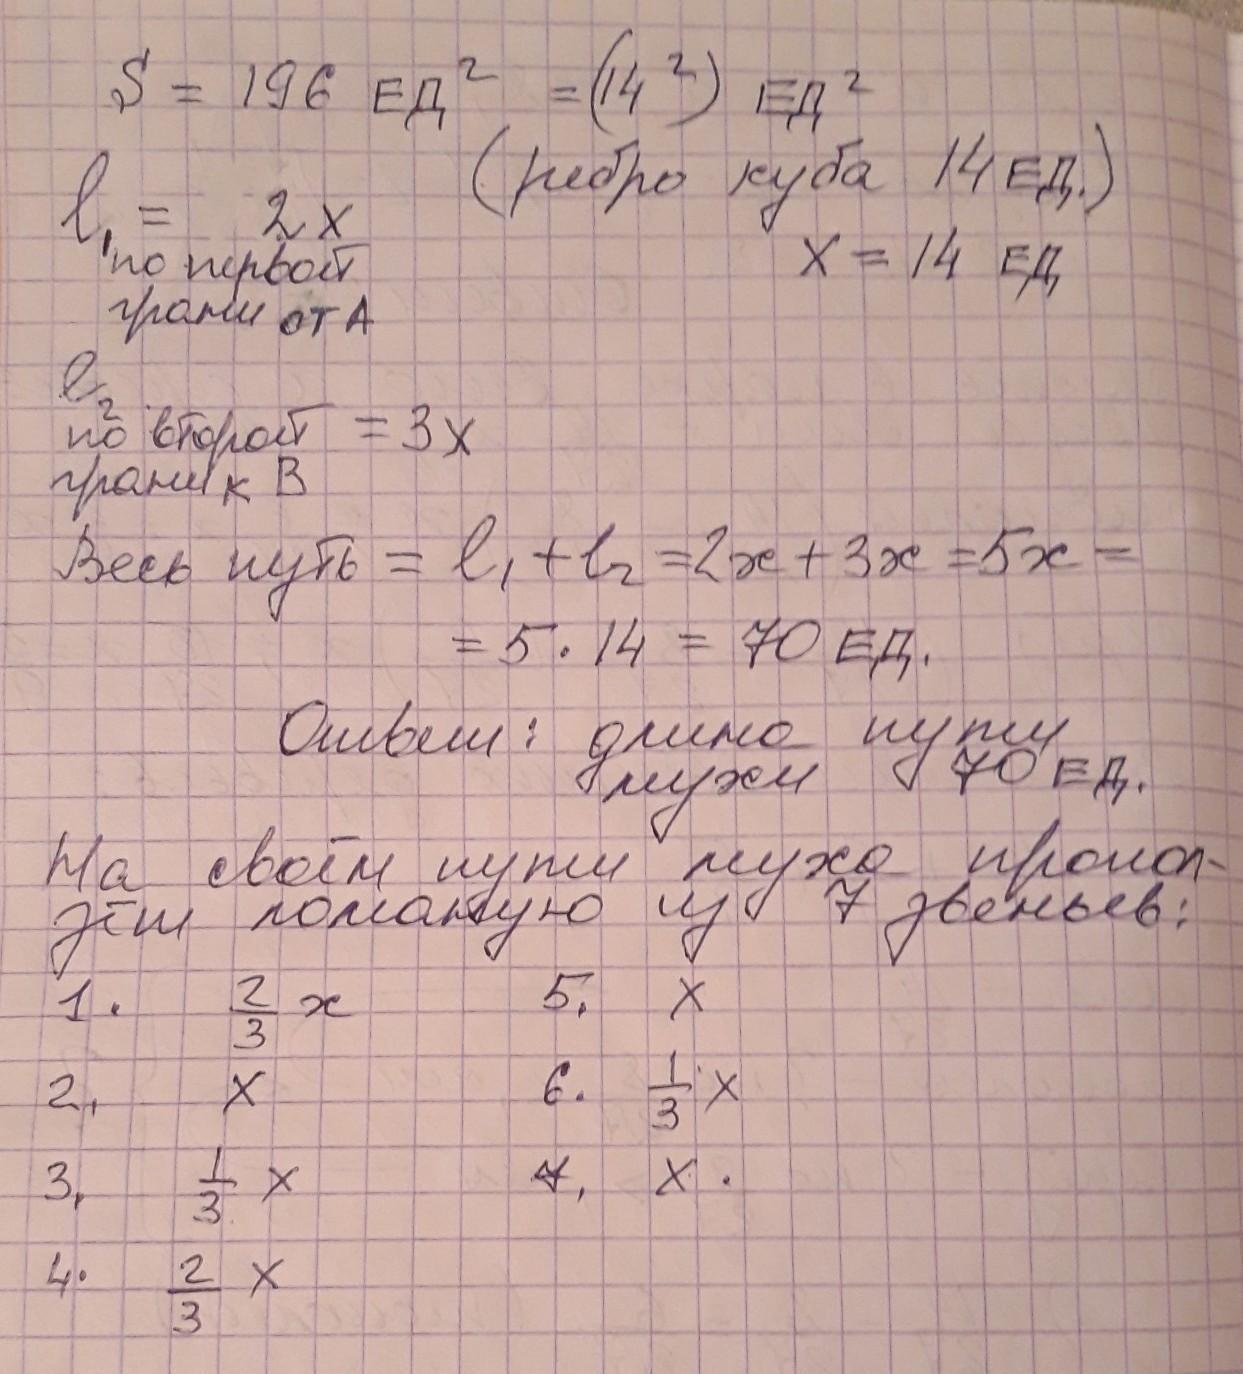 S = 196 ЕД² = (14²) ЕД²
(ребро куба 14 ЕД.)
l₁ = 2x
по первой
грани от А
x = 14 ЕД
l₂
по второй = 3x
грани к В
Весь путь = l₁ + l₂ = 2x + 3x = 5x =
= 5 · 14 = 70 ЕД.
Ответ: длина пути
мухи 70 ЕД.
На своём пути муха пропол
зёт ломаную из 7 звеньев:
1. 2/3 x 5. x
2. x 6. 1/3 x
3. 1/3 x 7. x.
4. 2/3 x